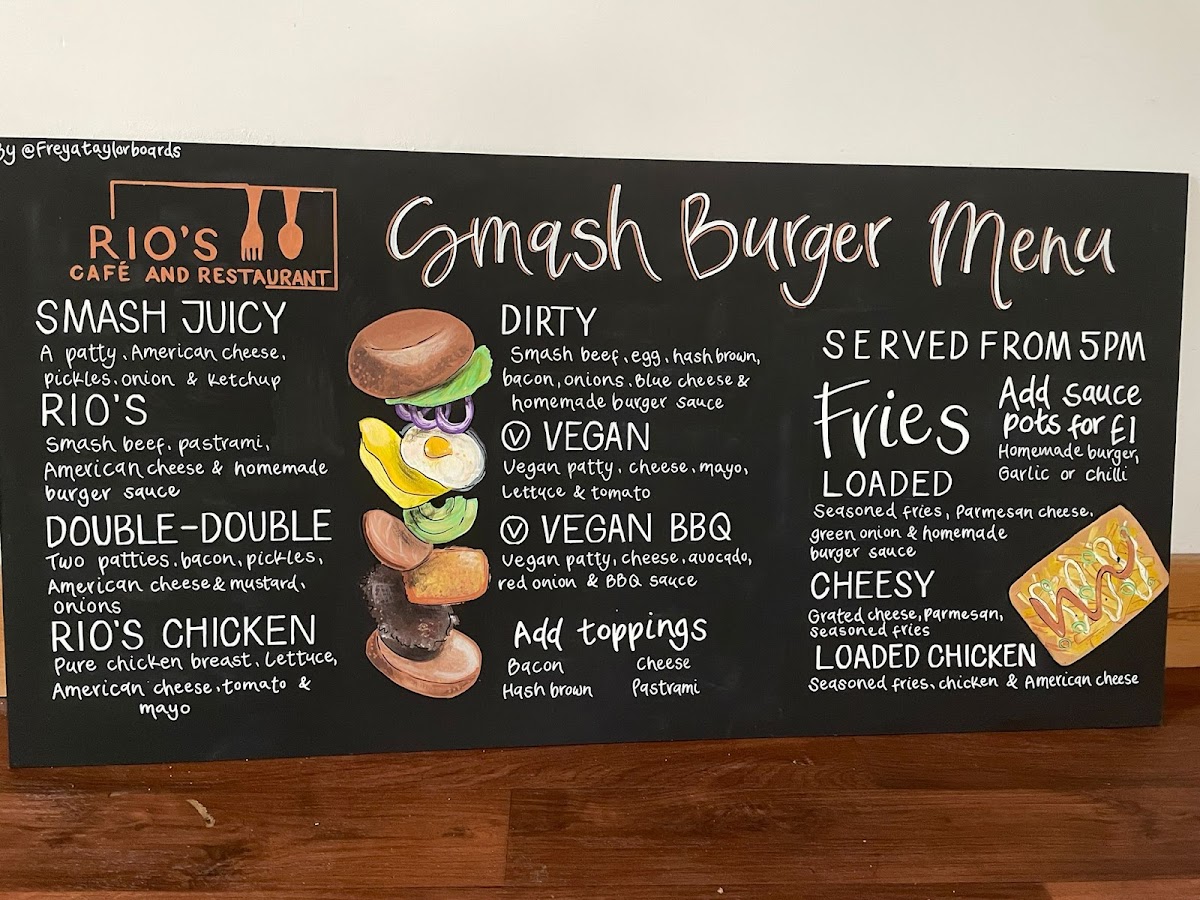 By @freyataylorboards
RIO'S
CAFÉ AND RESTAURANT
Smash Burger Menu
SMASH JUICY
A patty, American cheese,
pickles, onion & ketchup
RIO'S
Smash beef, pastrami,
American cheese & homemade
burger sauce
DOUBLE-DOUBLE
Two patties, bacon, pickles,
American cheese & mustard,
onions
RIO'S CHICKEN
Pure chicken breast, lettuce,
American cheese, tomato &
mayo
DIRTY
Smash beef, egg, hash brown,
bacon, onions, blue cheese &
homemade burger sauce
V VEGAN
Vegan patty, cheese, mayo,
Lettuce & tomato
V VEGAN BBQ
Vegan patty, cheese, avocado,
red onion & BBQ sauce
Add toppings
Bacon Cheese
Hash brown Pastrami
SERVED FROM 5PM
Fries
Add sauce
pots for £1
Homemade burger,
Garlic or chilli
LOADED
Seasoned fries, Parmesan cheese,
green onion & homemade
burger sauce
CHEESY
Grated cheese, Parmesan,
seasoned fries
LOADED CHICKEN
Seasoned fries, chicken & American cheese